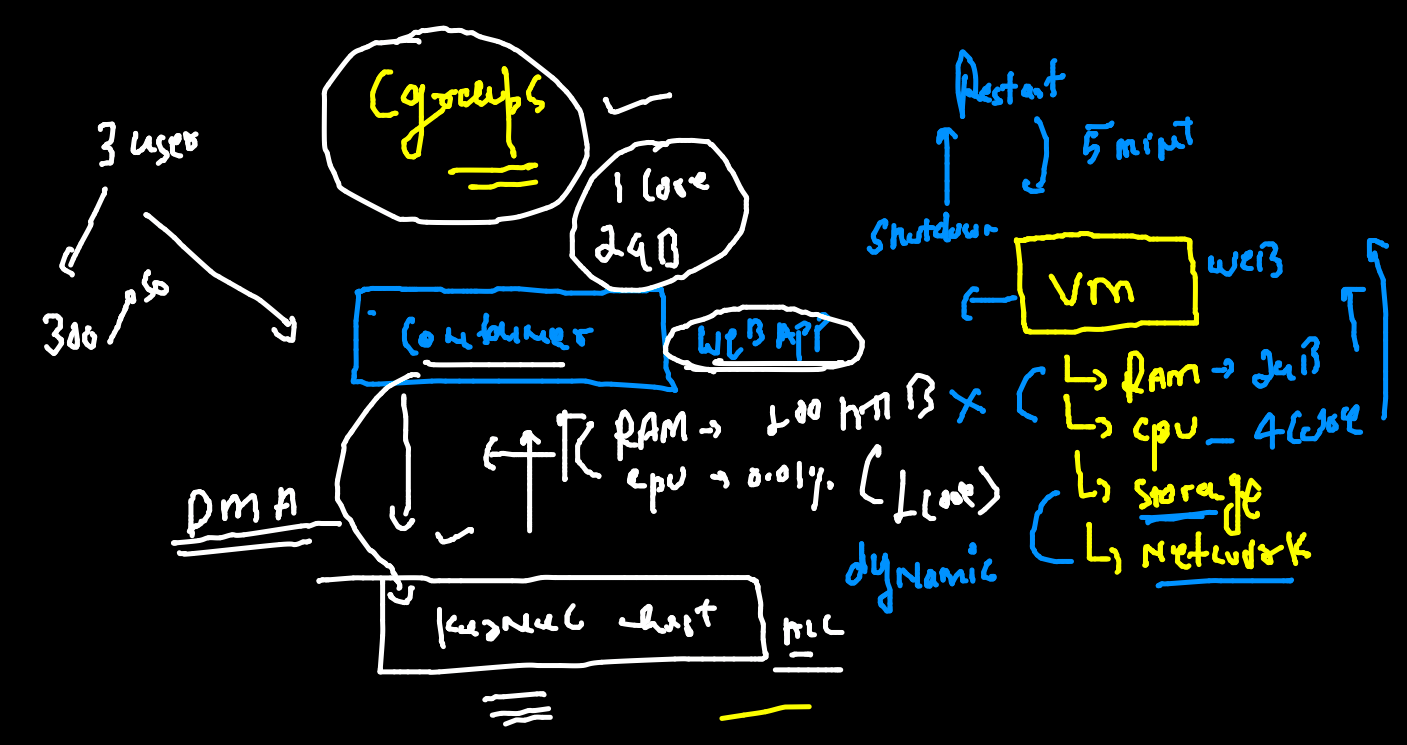 Cgroups
3 user
300
50
1 Core
2GB
Container
WEB APP
RAM → 100 MB
cpu → 0.01%
(1 core)
DMA
Kernel host
Restart
5 minut
Shutdown
VM
WEB
RAM → 2GB
cpu - 4 core
Storage
Network
dynamic